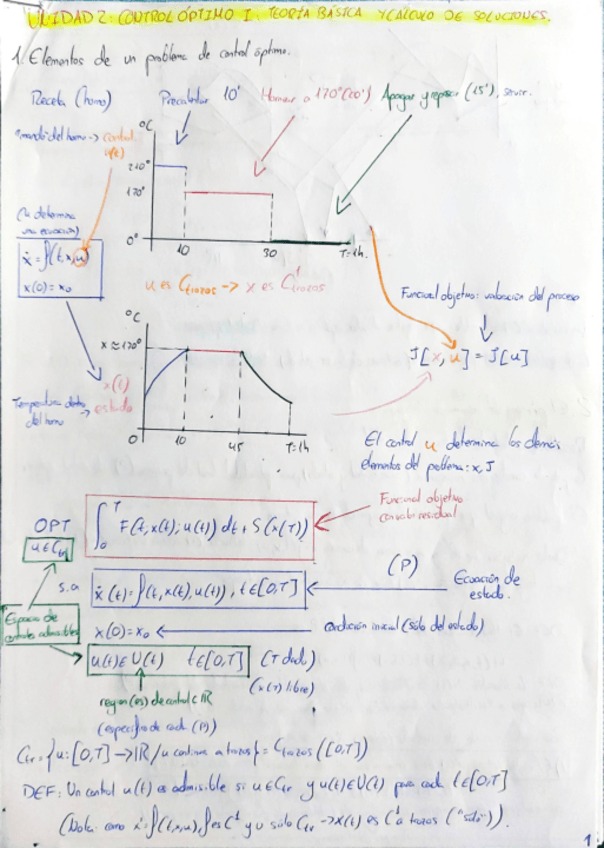 UNIDAD 2: CONTROL ÓPTIMO I: TEORÍA BÁSICA Y CÁLCULO DE SOLUCIONES.
1. Elementos de un problema de control óptimo.
Receta (horno)
Precalentar 10'
Hornear a 170° (20')
Apagar y reposar (15'), servir.
"mando" del horno -> control u(t)
°C
210°
170°
0°
10
30
T=1h.
(u determina
una ecuación)
ẋ = f(t,x,u)
x(0)=x₀
u es Ctrozos -> x es C¹trozos
Funcional objetivo: valoración del proceso
J[x,u] = J[u]
°C
x≈170°
x(t)
estado
Temperatura dentro
del horno
0
10
45
T=1h
El control u determina los demás
elementos del problema: x, J
Funcional objetivo
con valor residual
OPT
u∈Ctr
∫₀ᵀ F(t,x(t),u(t)) dt + S(x(T))
(P)
s.a
ẋ(t)=f(t,x(t),u(t)), t∈[0,T]
Ecuación de
estado.
Espacio de
controles admisibles
x(0)=x₀
condición inicial (sólo del estado)
u(t)∈U(t) t∈[0,T]
(T dado)
(x(T) libre)
region(es) de control ⊂ ℝ
(específico de cada (P))
Ctr={u:[0,T]→ℝ / u continua a trozos}= Ctrozos([0,T])
DEF: Un control u(t) es admisible si u∈Ctr y u(t)∈U(t) para cada t∈[0,T]
(Nota: como ẋ=f(t,x,u), f es C¹ y u sólo Ctr -> x(t) es C¹ a trozos ("sólo")).
1